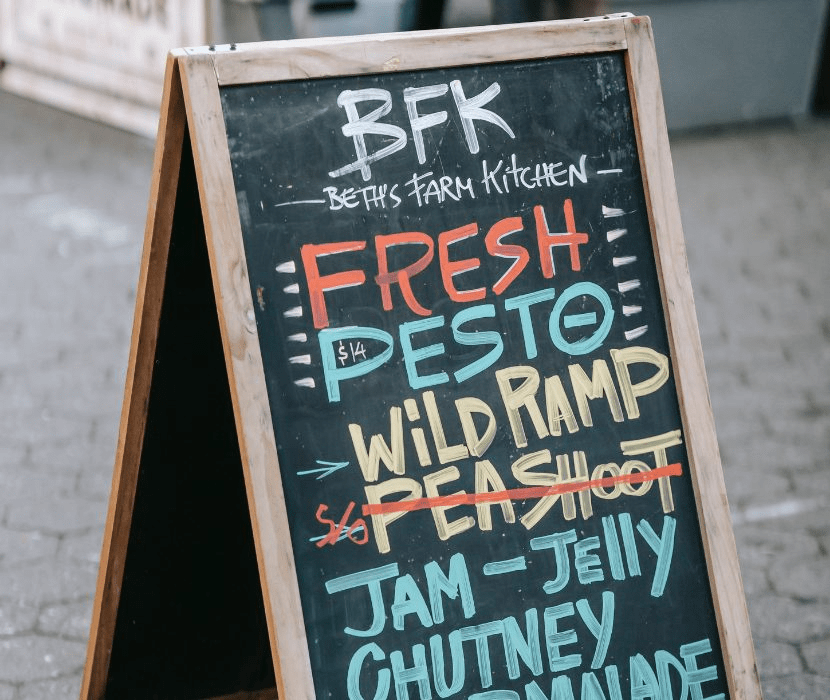 BFK
BETH'S FARM KITCHEN
FRESH
PESTO
$14
WiLD RAMP
S/O PEA SHOOT
JAM - JELLY
CHUTNEY